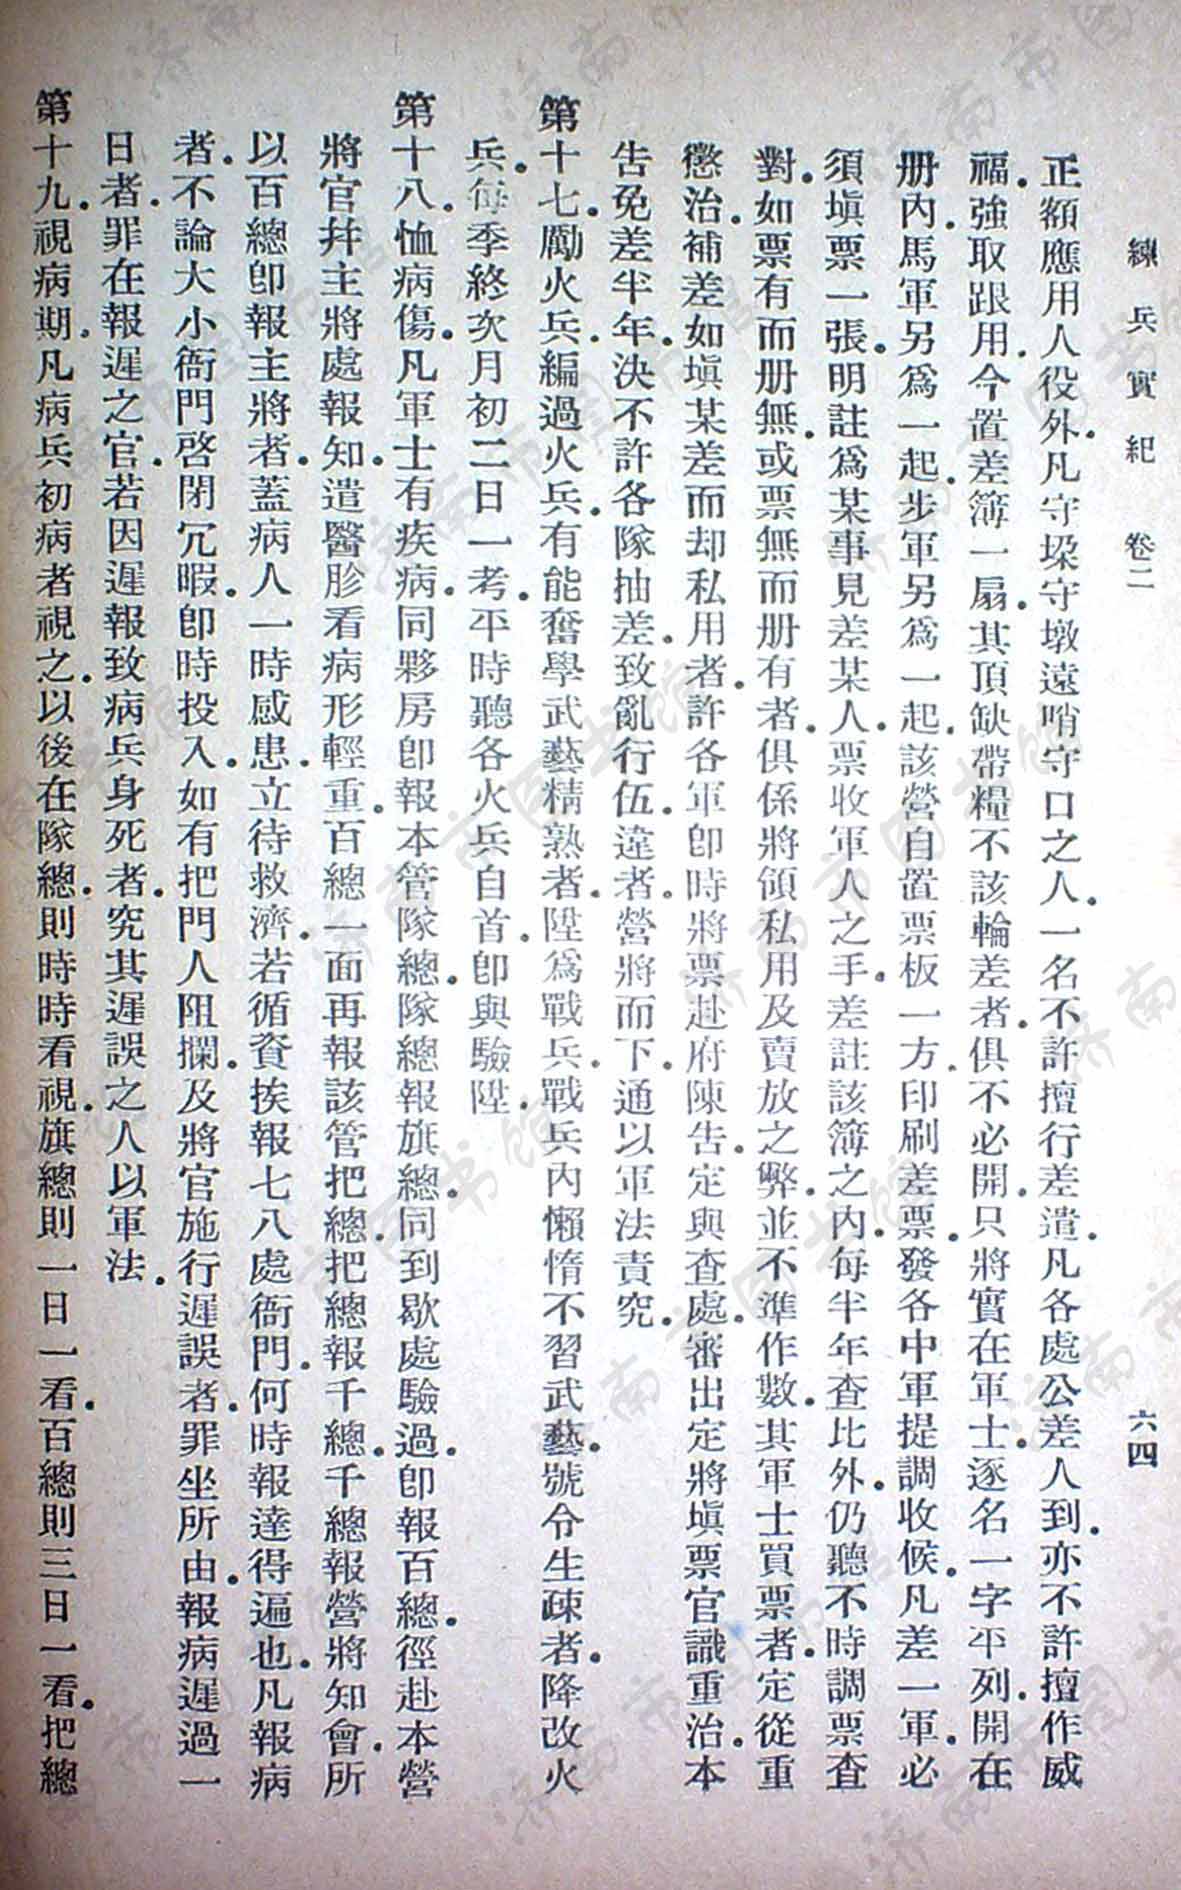 練兵實紀 卷二 六四
正額應用人役外。凡守垜守墩遠哨守口之人。一名不許擅行差遣。凡各處公差人到。亦不許擅作威
福。強取跟用。今置差簿一扇。其頂缺帶糧不該輪差者。俱不必開。只將實在軍士。逐名一字平列。開在
册內。馬軍另爲一起。步軍另爲一起。該營自置票板一方。印刷差票。發各中軍提調收候。凡差一軍。必
須塡票一張。明註爲某事見差某人。票收軍人之手。差註該簿之內。每半年查比外。仍聽不時調票查
對。如票有而册無。或票無而册有者。俱係將領私用及賣放之弊。並不准作數。其軍士買票者。定從重
懲治。補差如塡某差而却私用者。許各軍卽時將票赴府陳告。定與查處。審出定將塡票官識重治。本
告免差半年。決不許各隊抽差。致亂行伍。違者。營將而下。通以軍法責究。
第十七。勵火兵。編過火兵。有能奮學武藝精熟者。陞爲戰兵。戰兵內懶惰不習武藝。號令生疎者。降改火
兵。每季終次月初二日一考。平時聽各火兵自首。卽與驗陞。
第十八。恤病傷。凡軍士有疾病。同夥房卽報本管隊總。隊總報旗總。同到歇處驗過。卽報百總。徑赴本營
將官幷主將處報知。遣醫胗看病形輕重。百總一面再報該管把總。把總報千總。千總報營將知會。所
以百總卽報主將者。蓋病人一時感患。立待救濟。若循資挨報七八處衙門。何時報達得遍也。凡報病
者。不論大小衙門啓閉冗暇。卽時投入。如有把門人阻攔。及將官施行遲誤者。罪坐所由。報病遲過一
日者。罪在報遲之官。若因遲報致病兵身死者。究其遲誤之人以軍法。
第十九。視病期。凡病兵初病者視之。以後在隊總。則時時看視。旗總則一日一看。百總則三日一看。把總